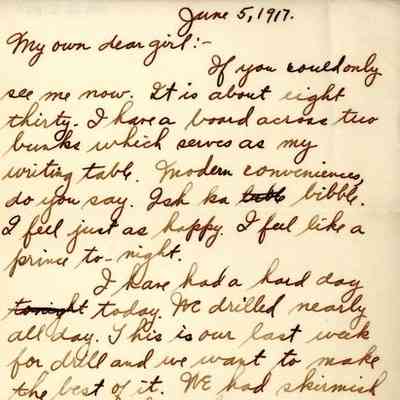 June 5, 1917.
My own dear girl:-
If you could only
see me now. It is about eight
thirty. I have a board across two
bunks which serves as my
writing table. Modern conveniences,
do you say. Ish ka bibble.
I feel just as happy. I feel like a
prince to-night.
I have had a hard day
tonight today. We drilled nearly
all day. This is our last week
for drill and we want to make
the best of it. We had skirmish